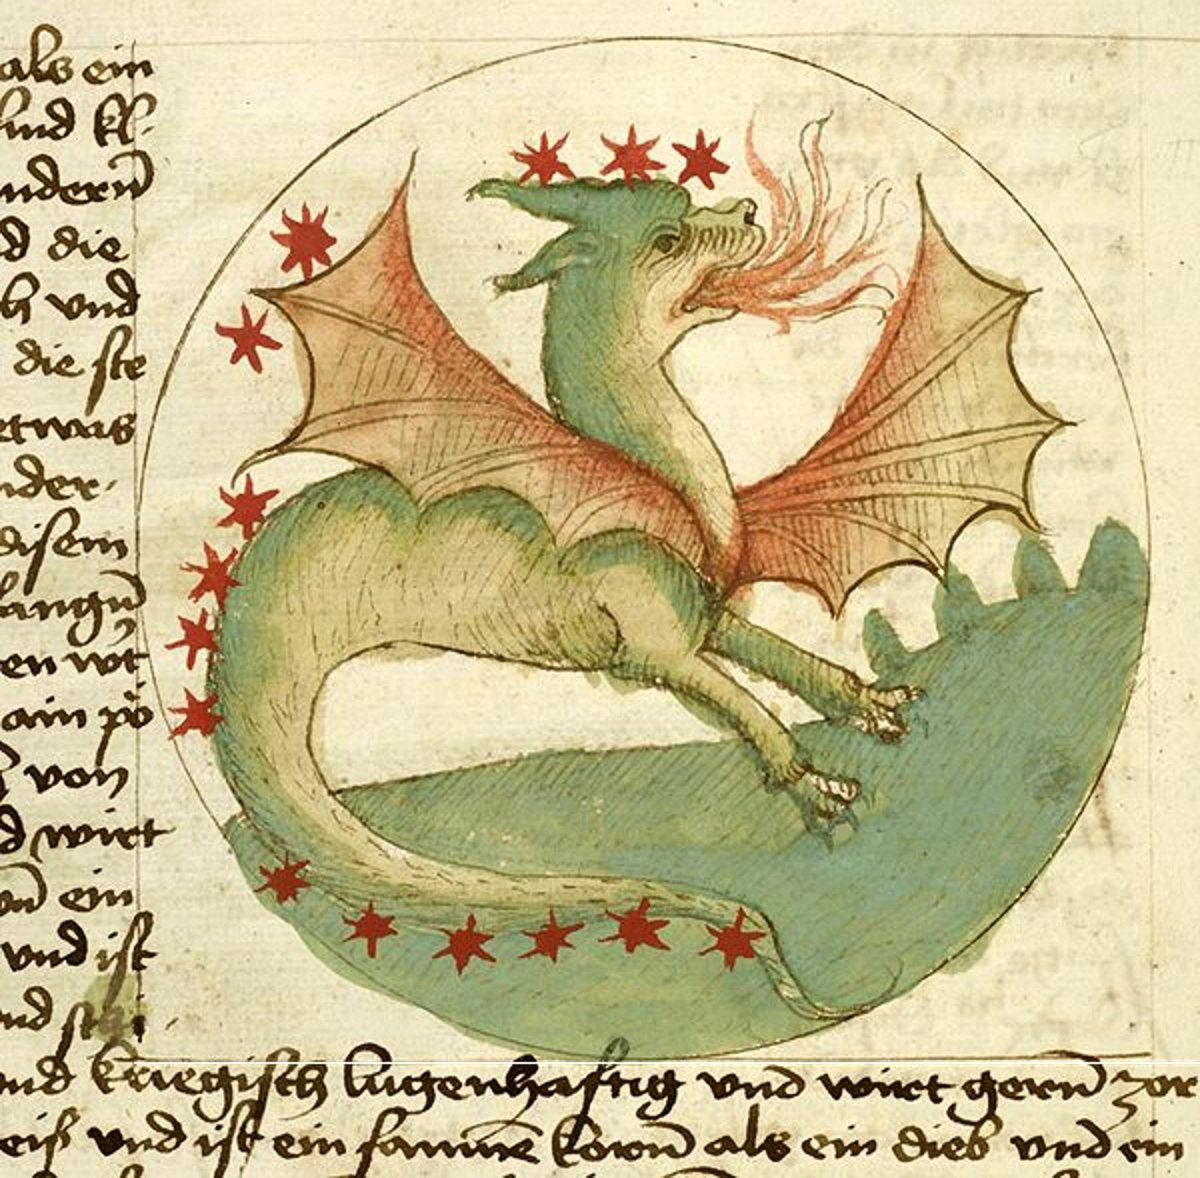 als ein
und kl.
andern̄
d die
h vnd
die ste
etwas
nder.
disem
langn̄
en wt
ain pö
von
d wirt
vn̄ ein
vnd ist
nd
vnd kriegisch lugenhafftig vnd wirt gern̄ zor
eiß vnd ist ein samnē korn̄ als ein dieb vnd ein